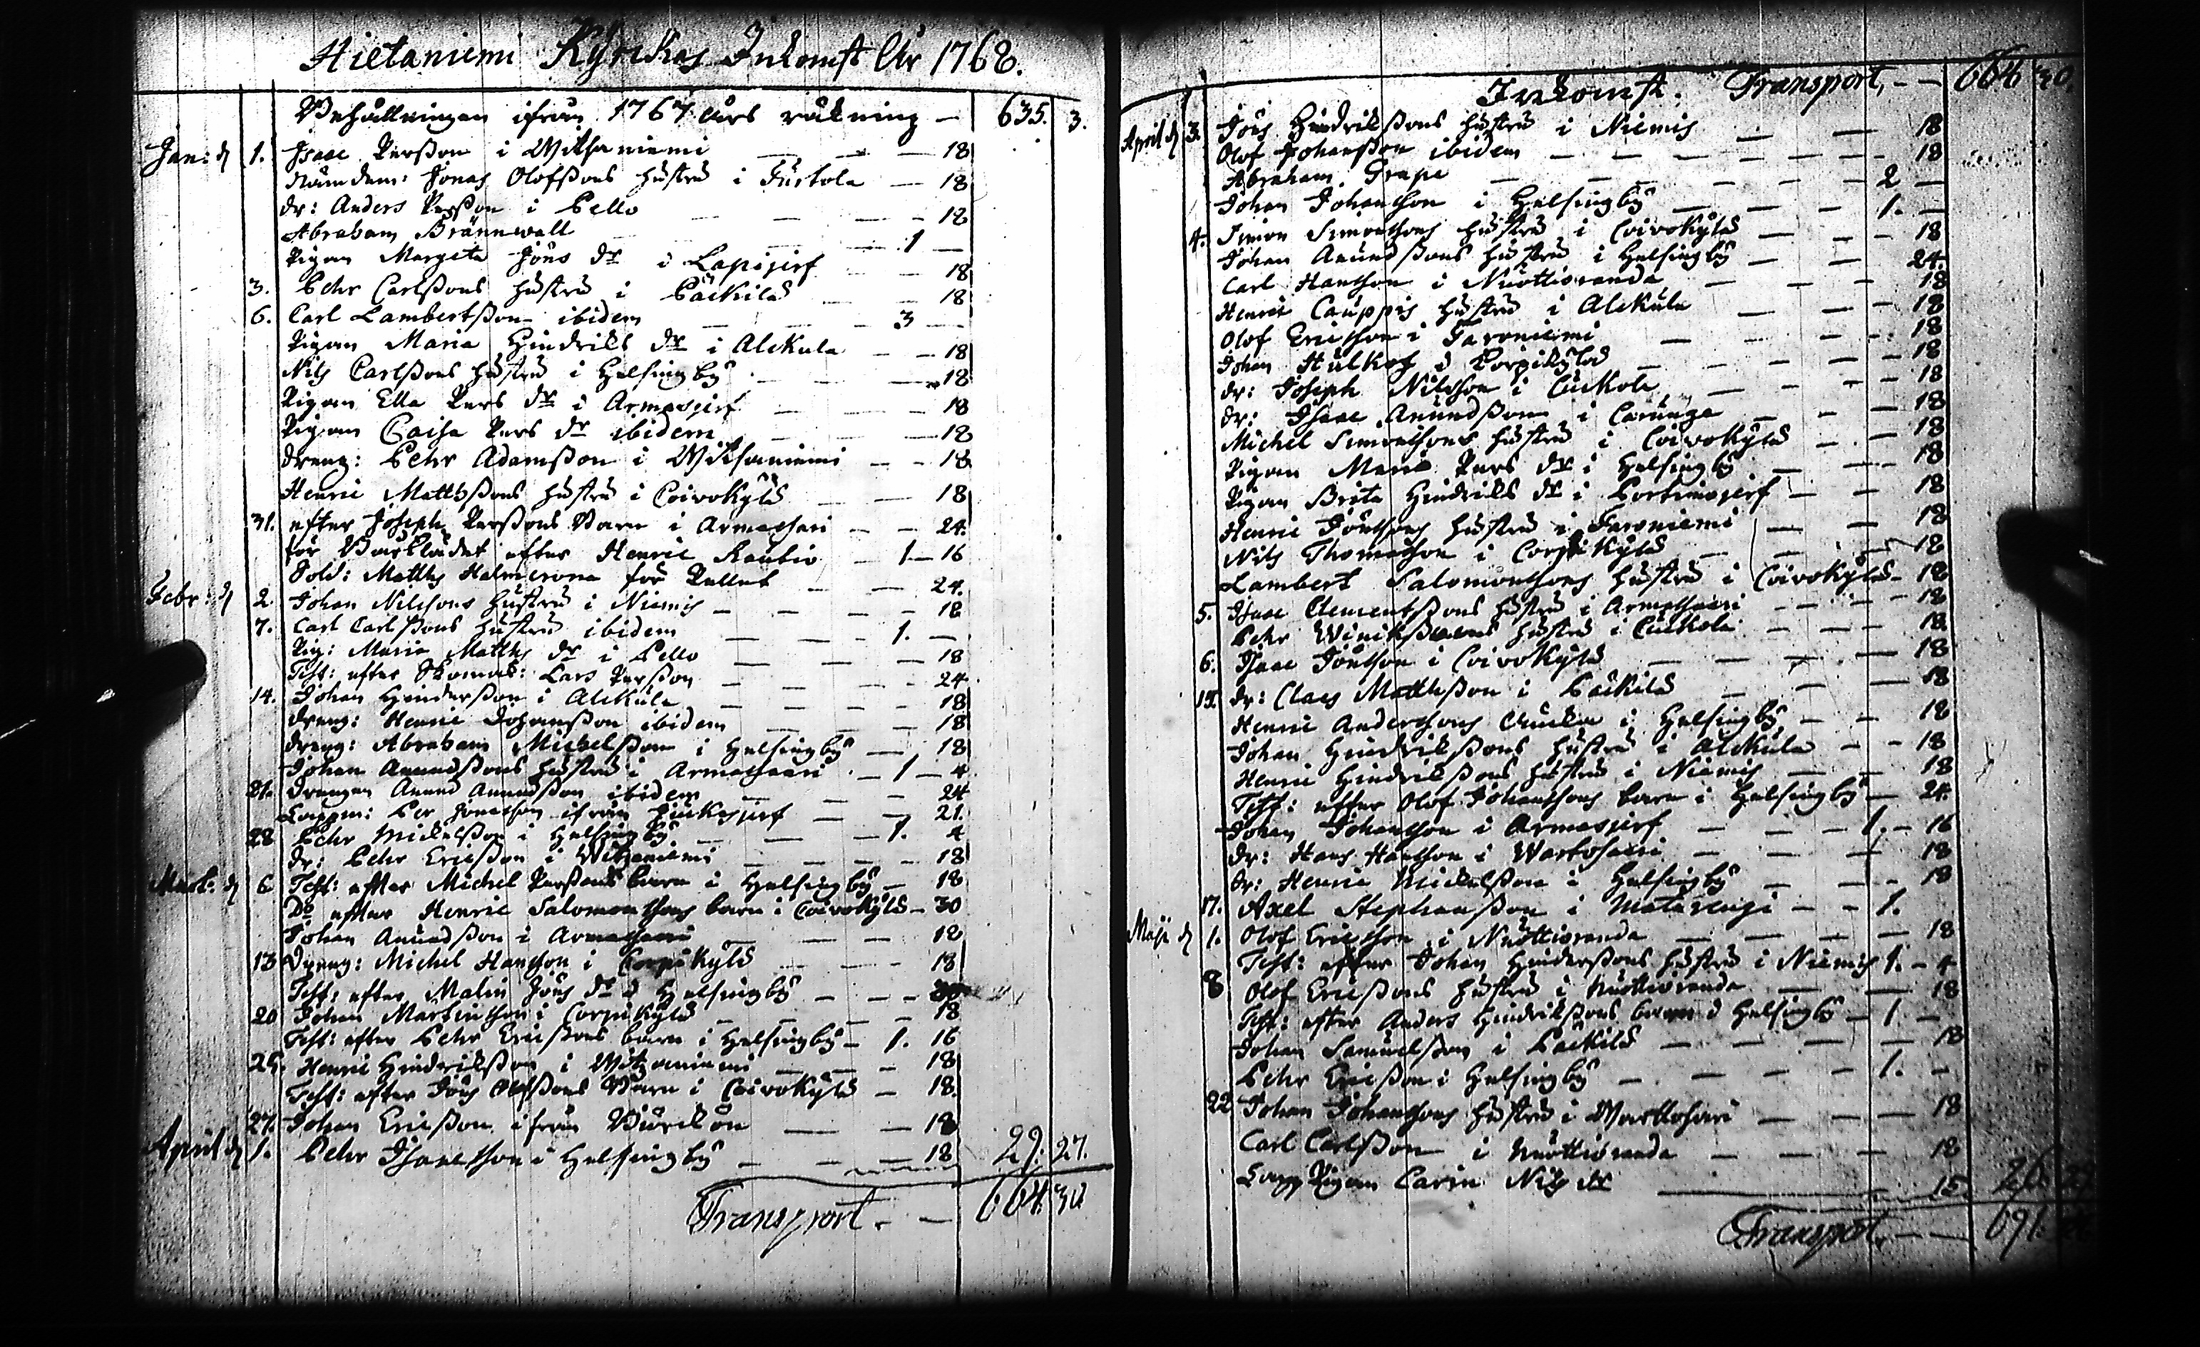 Hietaniemi Kyrckas Inkomst År 1768.
Behållningen ifrån 1767 års räkning — 635. 3.
Jan: d 1. Isaac Persson i Witsaniemi — — 18
Nämdem: Jonas Olofssons hustru i Justola — 18
dr: Anders Persson i Pello — — — 18
Abraham Brännwall — — 1 —
Pigan Margeta Jöns dr i Lapijerf — — 18
3. Pehr Carlssons hustru i Päckilä — — 18
6. Carl Lambertsson ibidem — — 3 —
Pigan Maria Hindriks dr i Alckula — — 18
Nils Carlssons hustru i Helsingby — — 18
Pigan Ella Pers dr i Armasjerf — — 18
Pigan Caisa Pers dr ibidem — — 18
dreng: Pehr Adamsson i Witsaniemi — — 18
Henric Matthssons hustru i Coivokylä — — 18
31. efter Joseph Perssons Barn i Armassari — — 24.
för Bårklädet efter Henric Rautio — 1 — 16
Sold: Matths Halmerona för — — 24.
Febr: d 2. Johan Nilssons hustru i Niemis — — 18
7. Carl Carlssons hustru ibidem — — 1. —
Pig: Maria Matths dr i Pello — — — 18
Test: efter Lars Persson — — 24
14. Johan Hindersson i Alckula — — — 18
dreng: Henric Johansson ibidem — — 18
dreng: Abraham Michelsson i Helsingby — 18
Johan Anundssons hustru i Armassaari — 1 — 4
21. Drengen Anund Anundsson ibidem — — 24
Lappm: Per Jonasson ifrån — — 21.
28 Pehr Mickelsson i Helsingby — — 1. 4
dr: Pehr Ericsson i Witzaniemi — — — 18
Mart: d 6 Test: efter Michel Perssons barn i Helsingby — 18
Do efter Henric Salomonssons barn i Coivokylä — 30
Johan Anundsson i Armassari — — — 18
13 Dreng: Michel Hansson i Corpikylä — — — 18
Test: efter Malin Jöns dr i Helsingby — — —
20 Johan Martinsson i Corpikylä — — 18
Test: efter Pehr Ericssons barn i Helsingby — 1. 16
25. Henric Hindriksson i Witzaniemi — — — 18
Test: efter Jöns Olofssons Barn i Coivokylä — 18.
27. Johan Ericsson ifrån Biörckön — — 18
April d 1. Pehr Isacsson i Helsingby — — — 18 29. 27.
Transport. — 664. 30
Inkomst. Transport, — — 664 30.
April d 3. Jöns Hindrikssons hustru i Niemis — — 18
Olof Johansson ibidem — — — — 18
Abraham Grape — — — — 2 —
Johan Johansson i Helsingby — — — 1. —
4. Simon Simonssons hustru i Coivokylä — — — 18
Johan Anundssons hustru i Helsingby — — 24.
Carl Hansson i Nuottioranda — — — 18
Henric Cauppis hustru i Alckula — — 18
Olof Ericsson i Taroniemi — — — 18
Johan Hulkof i Corpikylä — — — 18
dr: Joseph Nilsson i Cuckola — — — 18
dr: Isaac Anundsson i Carunge — — — 18
Michel Simonssons hustru i Coivokylä — — 18
Pigan Maria Pers dr i Helsingby — — 18
Pigan Brita Hindriks dr i Portimojerf — — 18
Henric Jönssons hustru i Taroniemi — — 18
Nils Thomasson i Corpikylä — — — 18
Lambert Salomonssons hustru i Coivokylä — 18
5. Isaac Clementssons hustru i Armassaari — — 18
Pehr Winikssons hustru i Cuckola — — — 18
6. Isaac Jönsson i Coivokylä — — — 18
dr: Claes Matthsson i Päckilä — — — 18
Henric Anderssons Encka i Helsingby — — 18
Johan Hindrikssons hustru i Alckula — — 18
Henric Hindrikssons hustru i Niemis — — 18
Test: efter Olof Johanssons barn i Helsingby — 24.
Johan Johansson i Armasjerf — — 1. — 16
dr: Hans Hansson i Wartosaari — — — 18
dr: Henric Mickelsson i Helsingby — — — 18
17. Axel Stephansson i Matarengi — — 1.
Maji d 1. Olof Ericsson i Nuottioranda — — — 18
Test: efter Johan Hinderssons hustru i Niemis 1. — 4
8 Olof Ericssons hustru i Nuottioranda — — 18
Test: efter Anders Hindrikssons barn i Helsingby — 1 —
Johan Samuelsson i Päckilä — — — — 18
Pehr Ericsson i Helsingby — — — — 1. —
22 Johan Johanssons hustru i Wartosari — — — 18
Carl Carlsson i Nuottioranda — — — 18
Lapp Pigan Carin Nils dr — 15. 26. 27
Transport. — — 691.